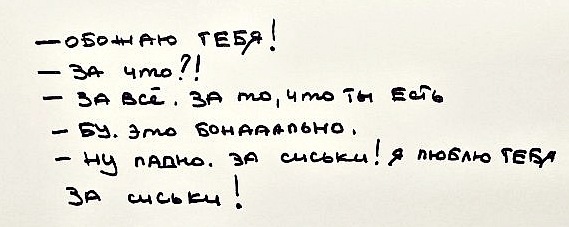 — ОБОЖАЮ ТЕБЯ!
— ЗА ЧТО?!
— ЗА ВСЁ. ЗА ТО, ЧТО ТЫ ЕСТЬ
— БУ. ЭТО БОНАААЛЬНО.
— НУ ЛАДНО. ЗА СИСЬКИ! Я ЛЮБЛЮ ТЕБЯ
ЗА СИСЬКИ!